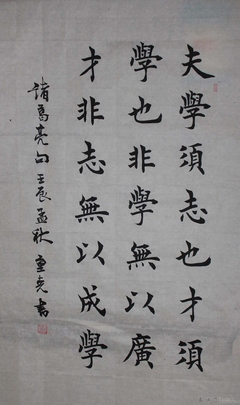 夫學須志也才須
學也非學無以廣
才非志無以成學
諸葛亮句 壬辰孟秋 書